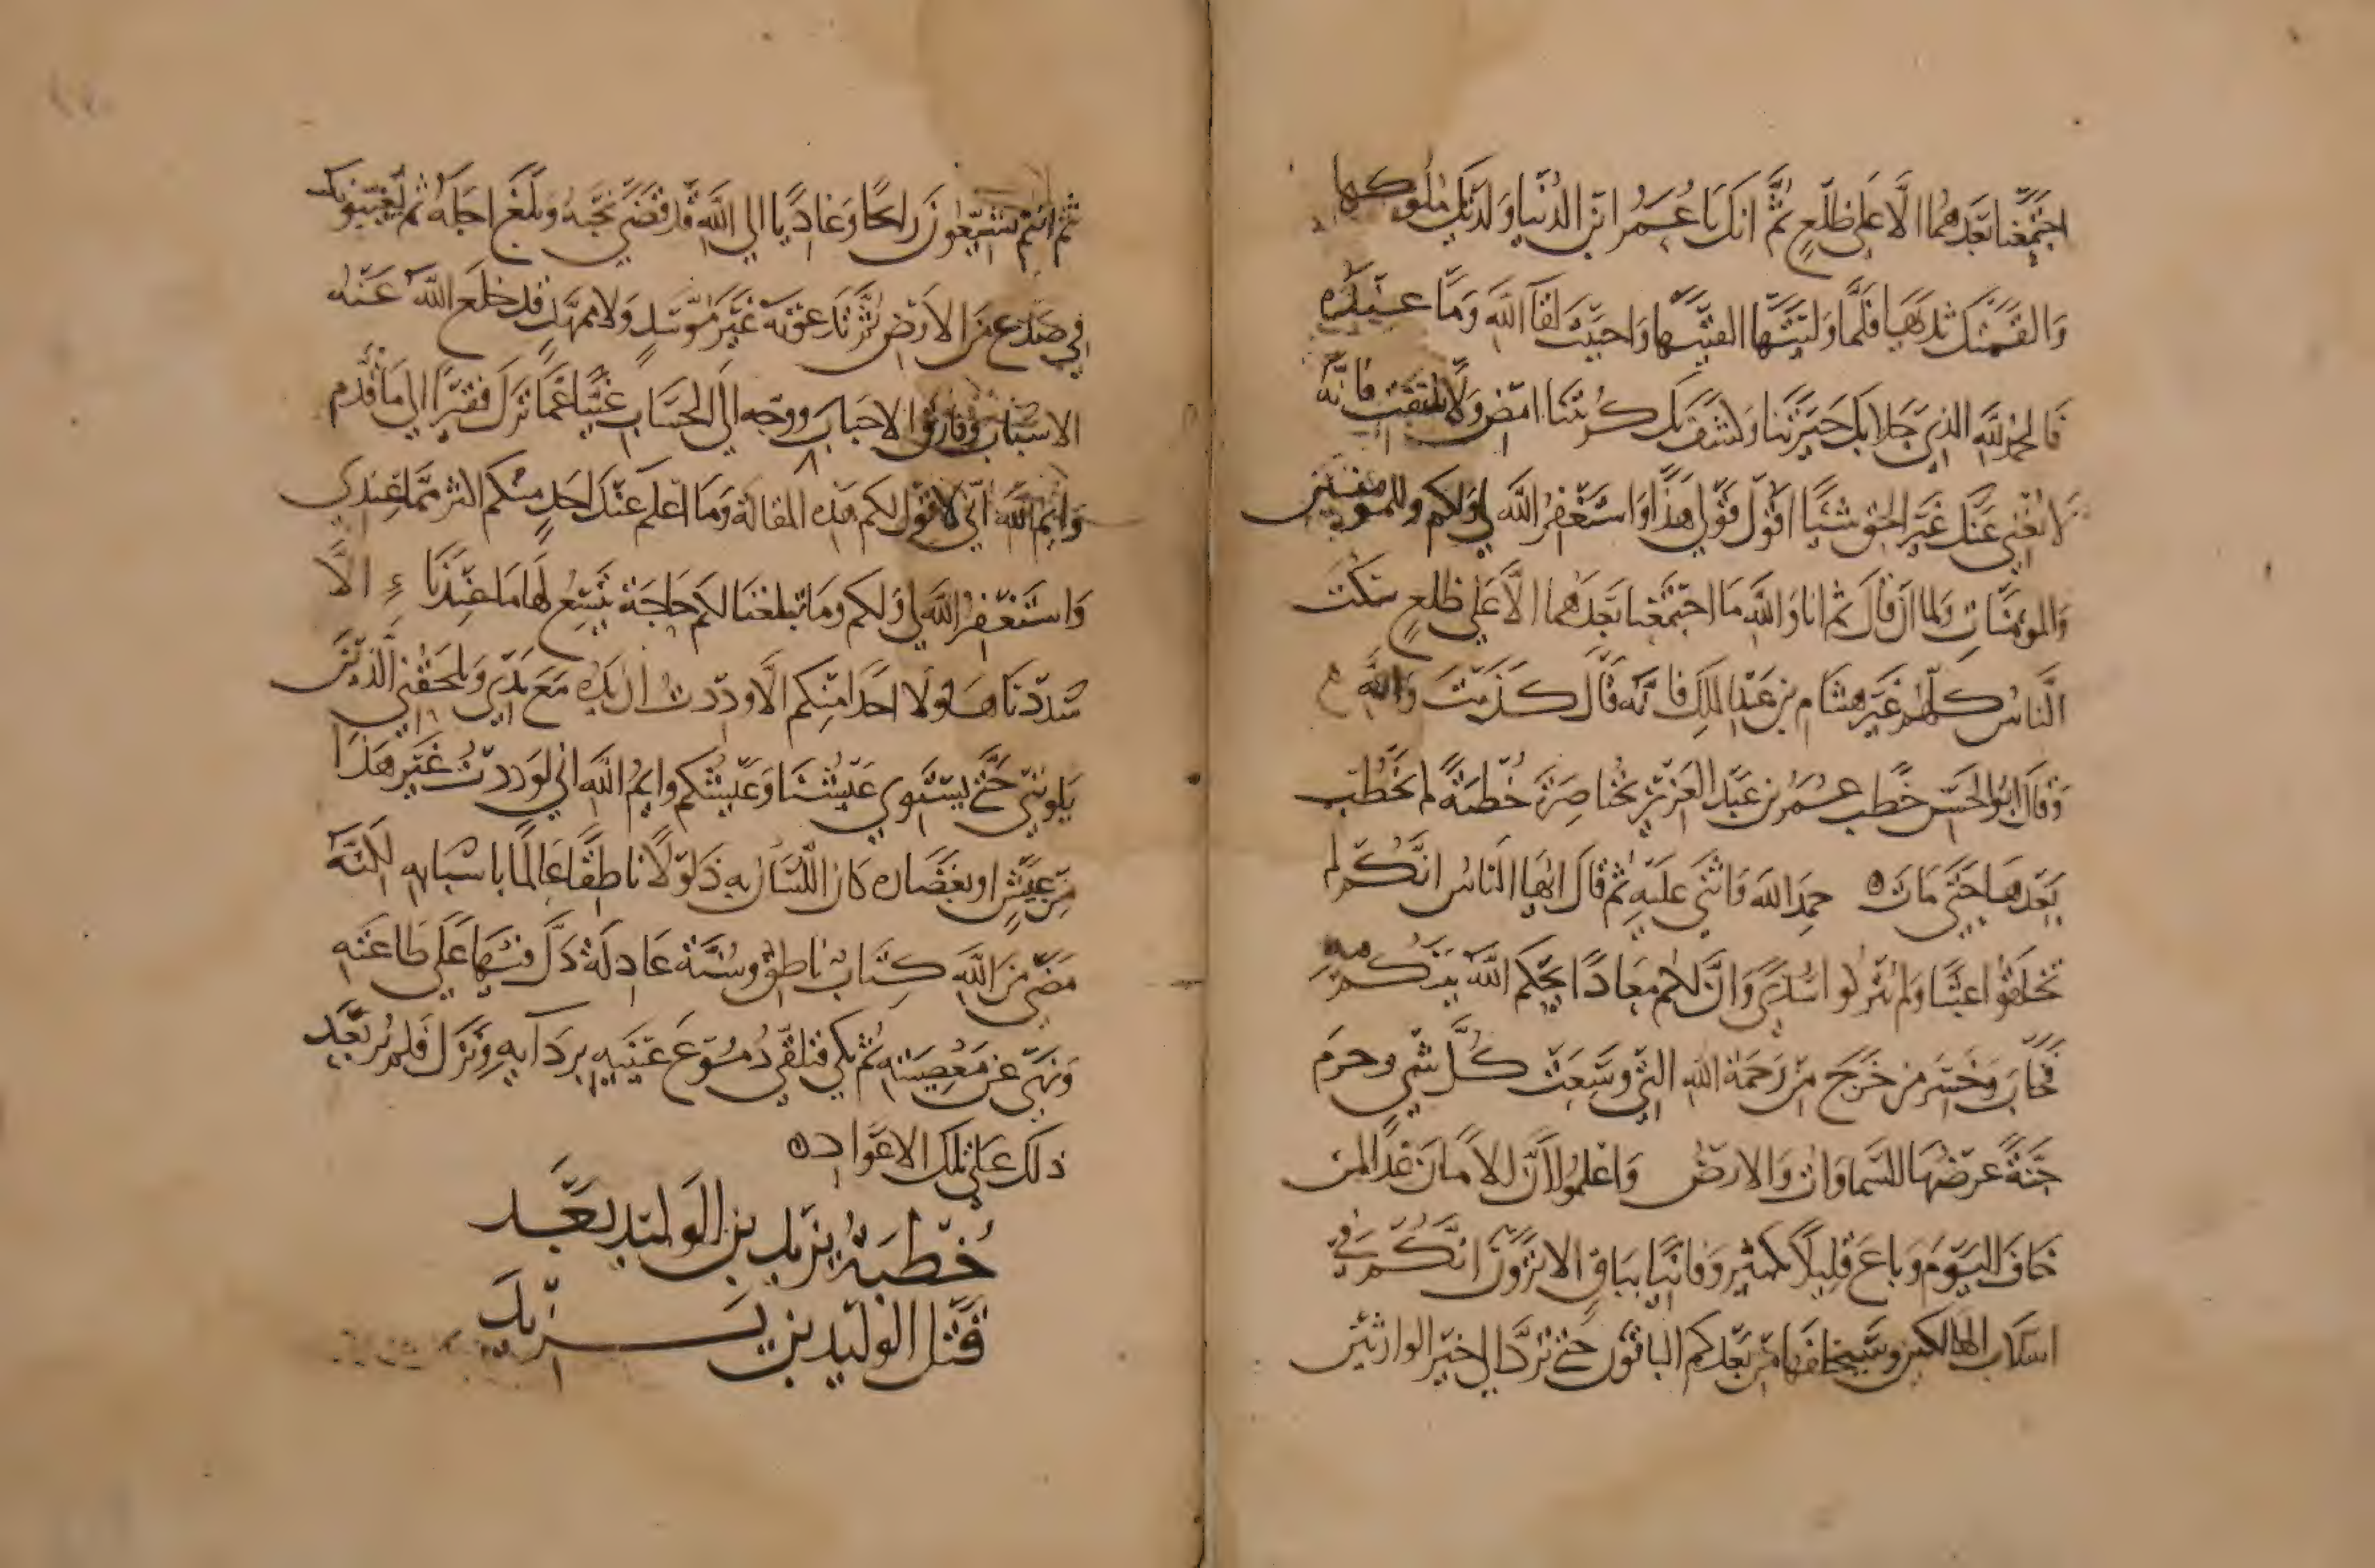 اجتمعنا بعدهما الا على ظلع ثم انك يا عمر ابن الدنيا ولدتك ملوكها
والقمتك ثديها فلما وليتها القيتها واحببت لقاء الله وما عنده
فالحمد لله الذي جلا بك حيرتنا وكشف بك كربتنا امض ولا تلتفت فانه
لا يغني عنك غير الحق شيئا اقول قولي هذا واستغفر الله لي ولكم وللمومنين
والمؤمنات ولما ان قال ثم انا والله ما اجتمعنا بعدهما الا على ظلع سكت
الناس كلهم غير هشام بن عبد الملك فانه قال كذبت والله
وقال ابو الحسن خطب عمر بن عبد العزيز بخناصرة خطبة لم يخطب
بعدها حتى مات ه حمد الله واثنى عليه ثم قال ايها الناس انكم لم
تخلقوا عبثا ولم تتركوا سدى وان لكم معادا يحكم الله بينكم فيه
فخاب وخسر من خرج من رحمة الله التي وسعت كل شي وحرم
جنة عرضها السماوات والارض واعلموا ان الامان غدا لمن
خاف اليوم وباع قليلا بكثير وفانيا بباق الا ترون انكم في
اسلاب الهالكين وسيخلفها من بعدكم الباقون حتى ترد الى خير الوارثين
ثم انتم تشيعون رايحا وغاديا الى الله قد قضى نحبه وبلغ اجله ثم تغيبونه
في صدع من الارض ثم تدعونه غير موسد ولا ممهد قد خلع الله عنه
الاسباب وفارق الاحباب ووجه الى الحساب غنيا عما ترك فقيرا الى ما قدم
وايم الله اني لاقول لكم هذه المقالة وما اعلم عند احد منكم اكثر مما عندي
واستغفر الله لي ولكم وما تبلغنا لكم حاجة يتسع لها ما عندنا الا
سددناها ولا احدا منكم الا وددت ان يده مع يدي ويلحقني الذين
يلونني حتى يستوي عيشنا وعيشكم وايم الله اني لو رددت غير هذا
من عيش او بغضاره كان اللسان به ذلولا ناطقا عالما باسبابه لكنه
مضى من الله كتاب ناطق وسنة عادلة دل فيها على طاعته
ونهى عن معصيته ثم بكى فتلقى دموع عينيه بردايه ونزل فلم يعد
ذلك على تلك الاعواد ه
خطبة يزيد بن الوليد بعد
قتل الوليد بن يزيد